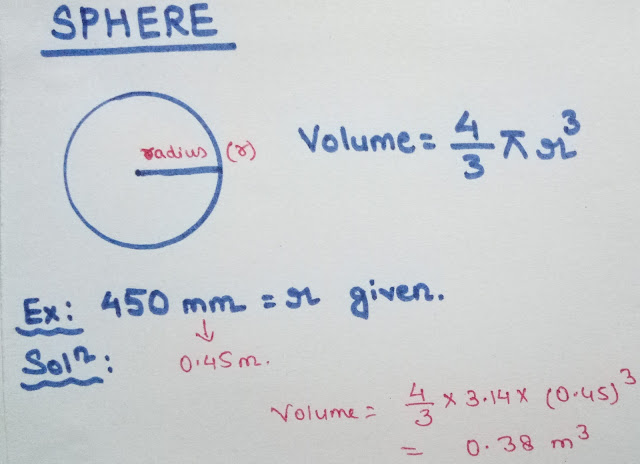 SPHERE
radius (r)
Volume = 4/3 π r³
Ex: 450 mm = r given.
↓
Solⁿ: 0.45m.
Volume = 4/3 x 3.14 x (0.45)³
= 0.38 m³